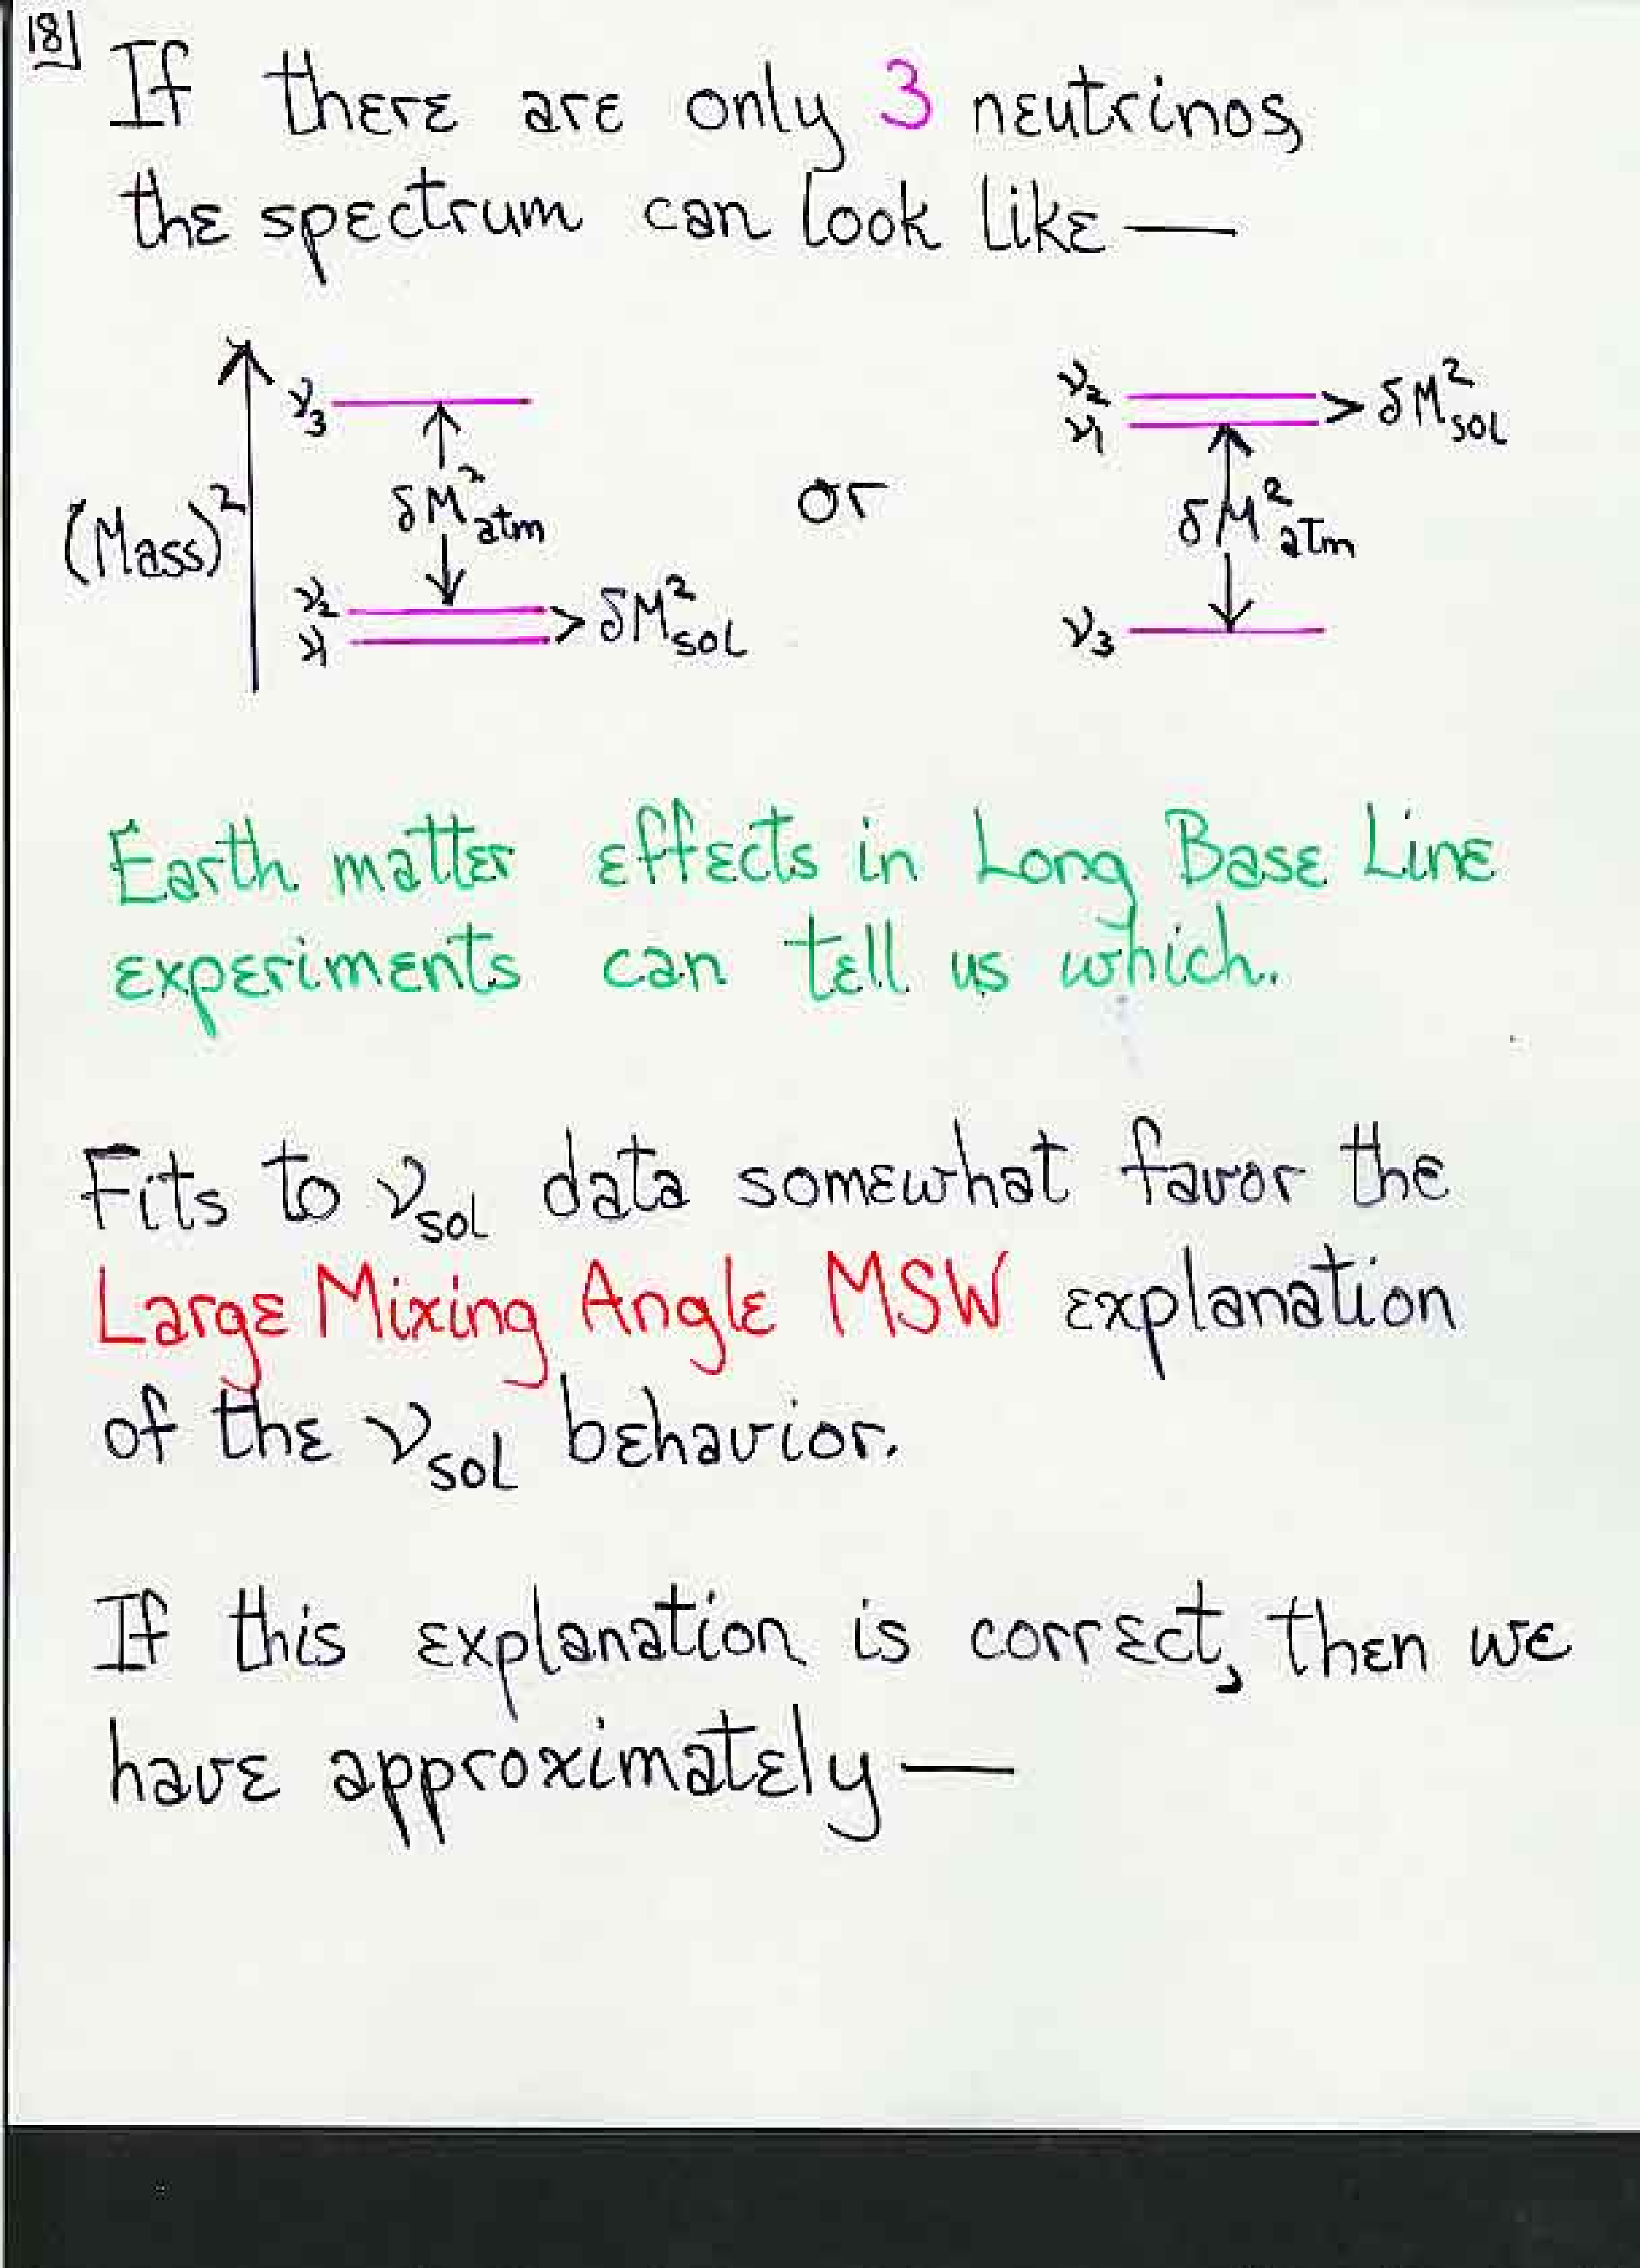 18
If there are only 3 neutrinos,
the spectrum can look like —
(Mass)²
ν₃
δM²atm
ν₂
ν₁
> δM²sol
or
ν₂
ν₁
> δM²sol
δM²atm
ν₃
Earth matter effects in Long Base Line
experiments can tell us which.
Fits to νsol data somewhat favor the
Large Mixing Angle MSW explanation
of the νsol behavior.
If this explanation is correct, then we
have approximately —